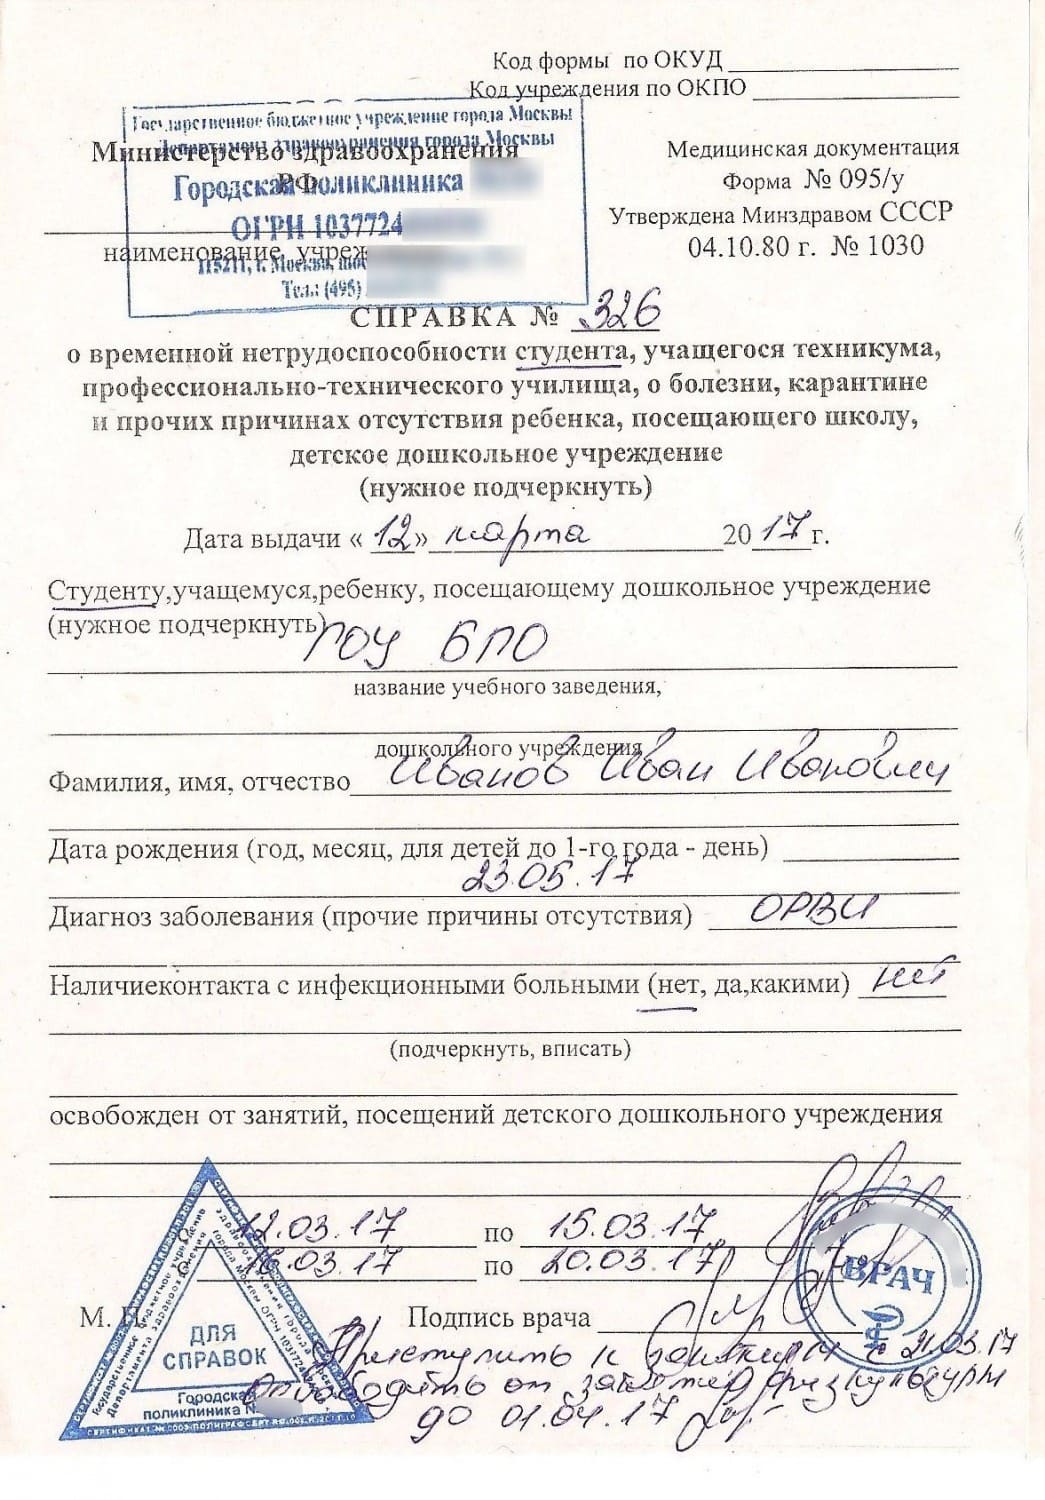 Код формы по ОКУД
Код учреждения по ОКПО
Государственное бюджетное учреждение города Москвы
Департамент здравоохранения города Москвы
Министерство здравоохранения
РФ
Городская поликлиника
ОГРН 1037724
наименование учреж
115211, г. Москва,
Тел.: (495)
Медицинская документация
Форма № 095/у
Утверждена Минздравом СССР
04.10.80 г. № 1030
СПРАВКА № 326
о временной нетрудоспособности студента, учащегося техникума,
профессионально-технического училища, о болезни, карантине
и прочих причинах отсутствия ребенка, посещающего школу,
детское дошкольное учреждение
(нужное подчеркнуть)
Дата выдачи « 12» марта 2017г.
Студенту,учащемуся,ребенку, посещающему дошкольное учреждение
(нужное подчеркнуть)
ГОУ БПО
название учебного заведения,
дошкольного учреждения
Фамилия, имя, отчество Иванов Иван Иванович
Дата рождения (год, месяц, для детей до 1-го года - день)
23.05.17
Диагноз заболевания (прочие причины отсутствия) ОРВИ
Наличиеконтакта с инфекционными больными (нет, да,какими) нет
(подчеркнуть, вписать)
освобожден от занятий, посещений детского дошкольного учреждения
С 12.03.17 по 15.03.17
С 16.03.17 по 20.03.17
ВРАЧ
М. П. Подпись врача
ДЛЯ
СПРАВОК
Городская
поликлиника №
Приступить к занятиям с 21.03.17
Освободить от занятий физкультуры
до 01.04.17